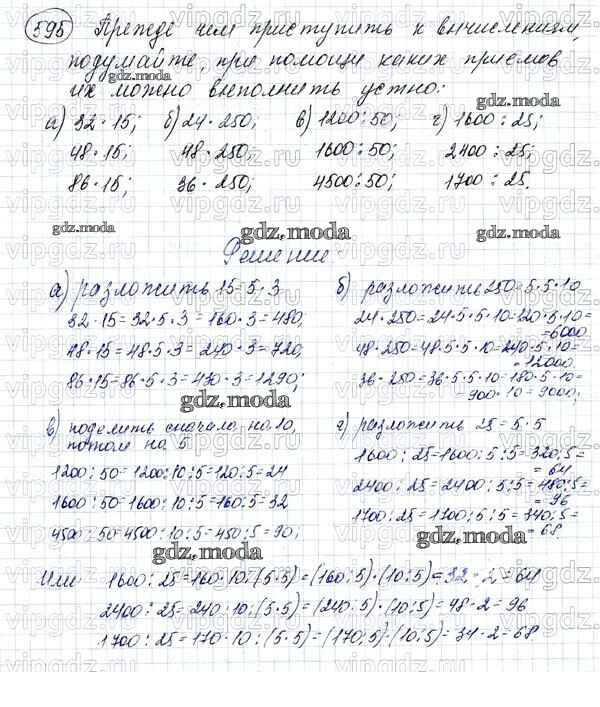 595 Прежде чем приступить к вычислениям,
подумайте, при помощи каких приемов
их можно выполнить устно:
а) 32·15; б) 24·250; в) 1200:50; г) 1600:25;
48·15; 48·250; 1600:50; 2400:25;
86·15; 36·250; 4500:50; 1700:25.
Решение
а) разложить 15=5·3
32·15=32·5·3=160·3=480;
48·15=48·5·3=240·3=720;
86·15=86·5·3=430·3=1290;
б) разложить 250=5·5·10
24·250=24·5·5·10=120·5·10=
=6000
48·250=48·5·5·10=240·5·10=
=12000
36·250=36·5·5·10=180·5·10=
=900·10=9000;
в) поделить сначала на 10,
потом на 5
1200:50=1200:10:5=120:5=24
1600:50=1600:10:5=160:5=32
4500:50=4500:10:5=450:5=90;
г) разложить 25=5·5
1600:25=1600:5:5=320:5=
=64
2400:25=2400:5:5=480:5=
=96
1700:25=1700:5:5=340:5=
=68
Или 1600:25=160·10:(5·5)=(160:5)·(10:5)=32·2=64
2400:25=240·10:(5·5)=(240:5)·(10:5)=48·2=96
1700:25=170·10:(5·5)=(170:5)·(10:5)=34·2=68.
gdz.moda
gdz.moda
gdz.moda
gdz.moda
gdz.moda
gdz.moda
gdz.moda
gdz.moda
gdz.moda
gdz.moda
vipgdz.ru